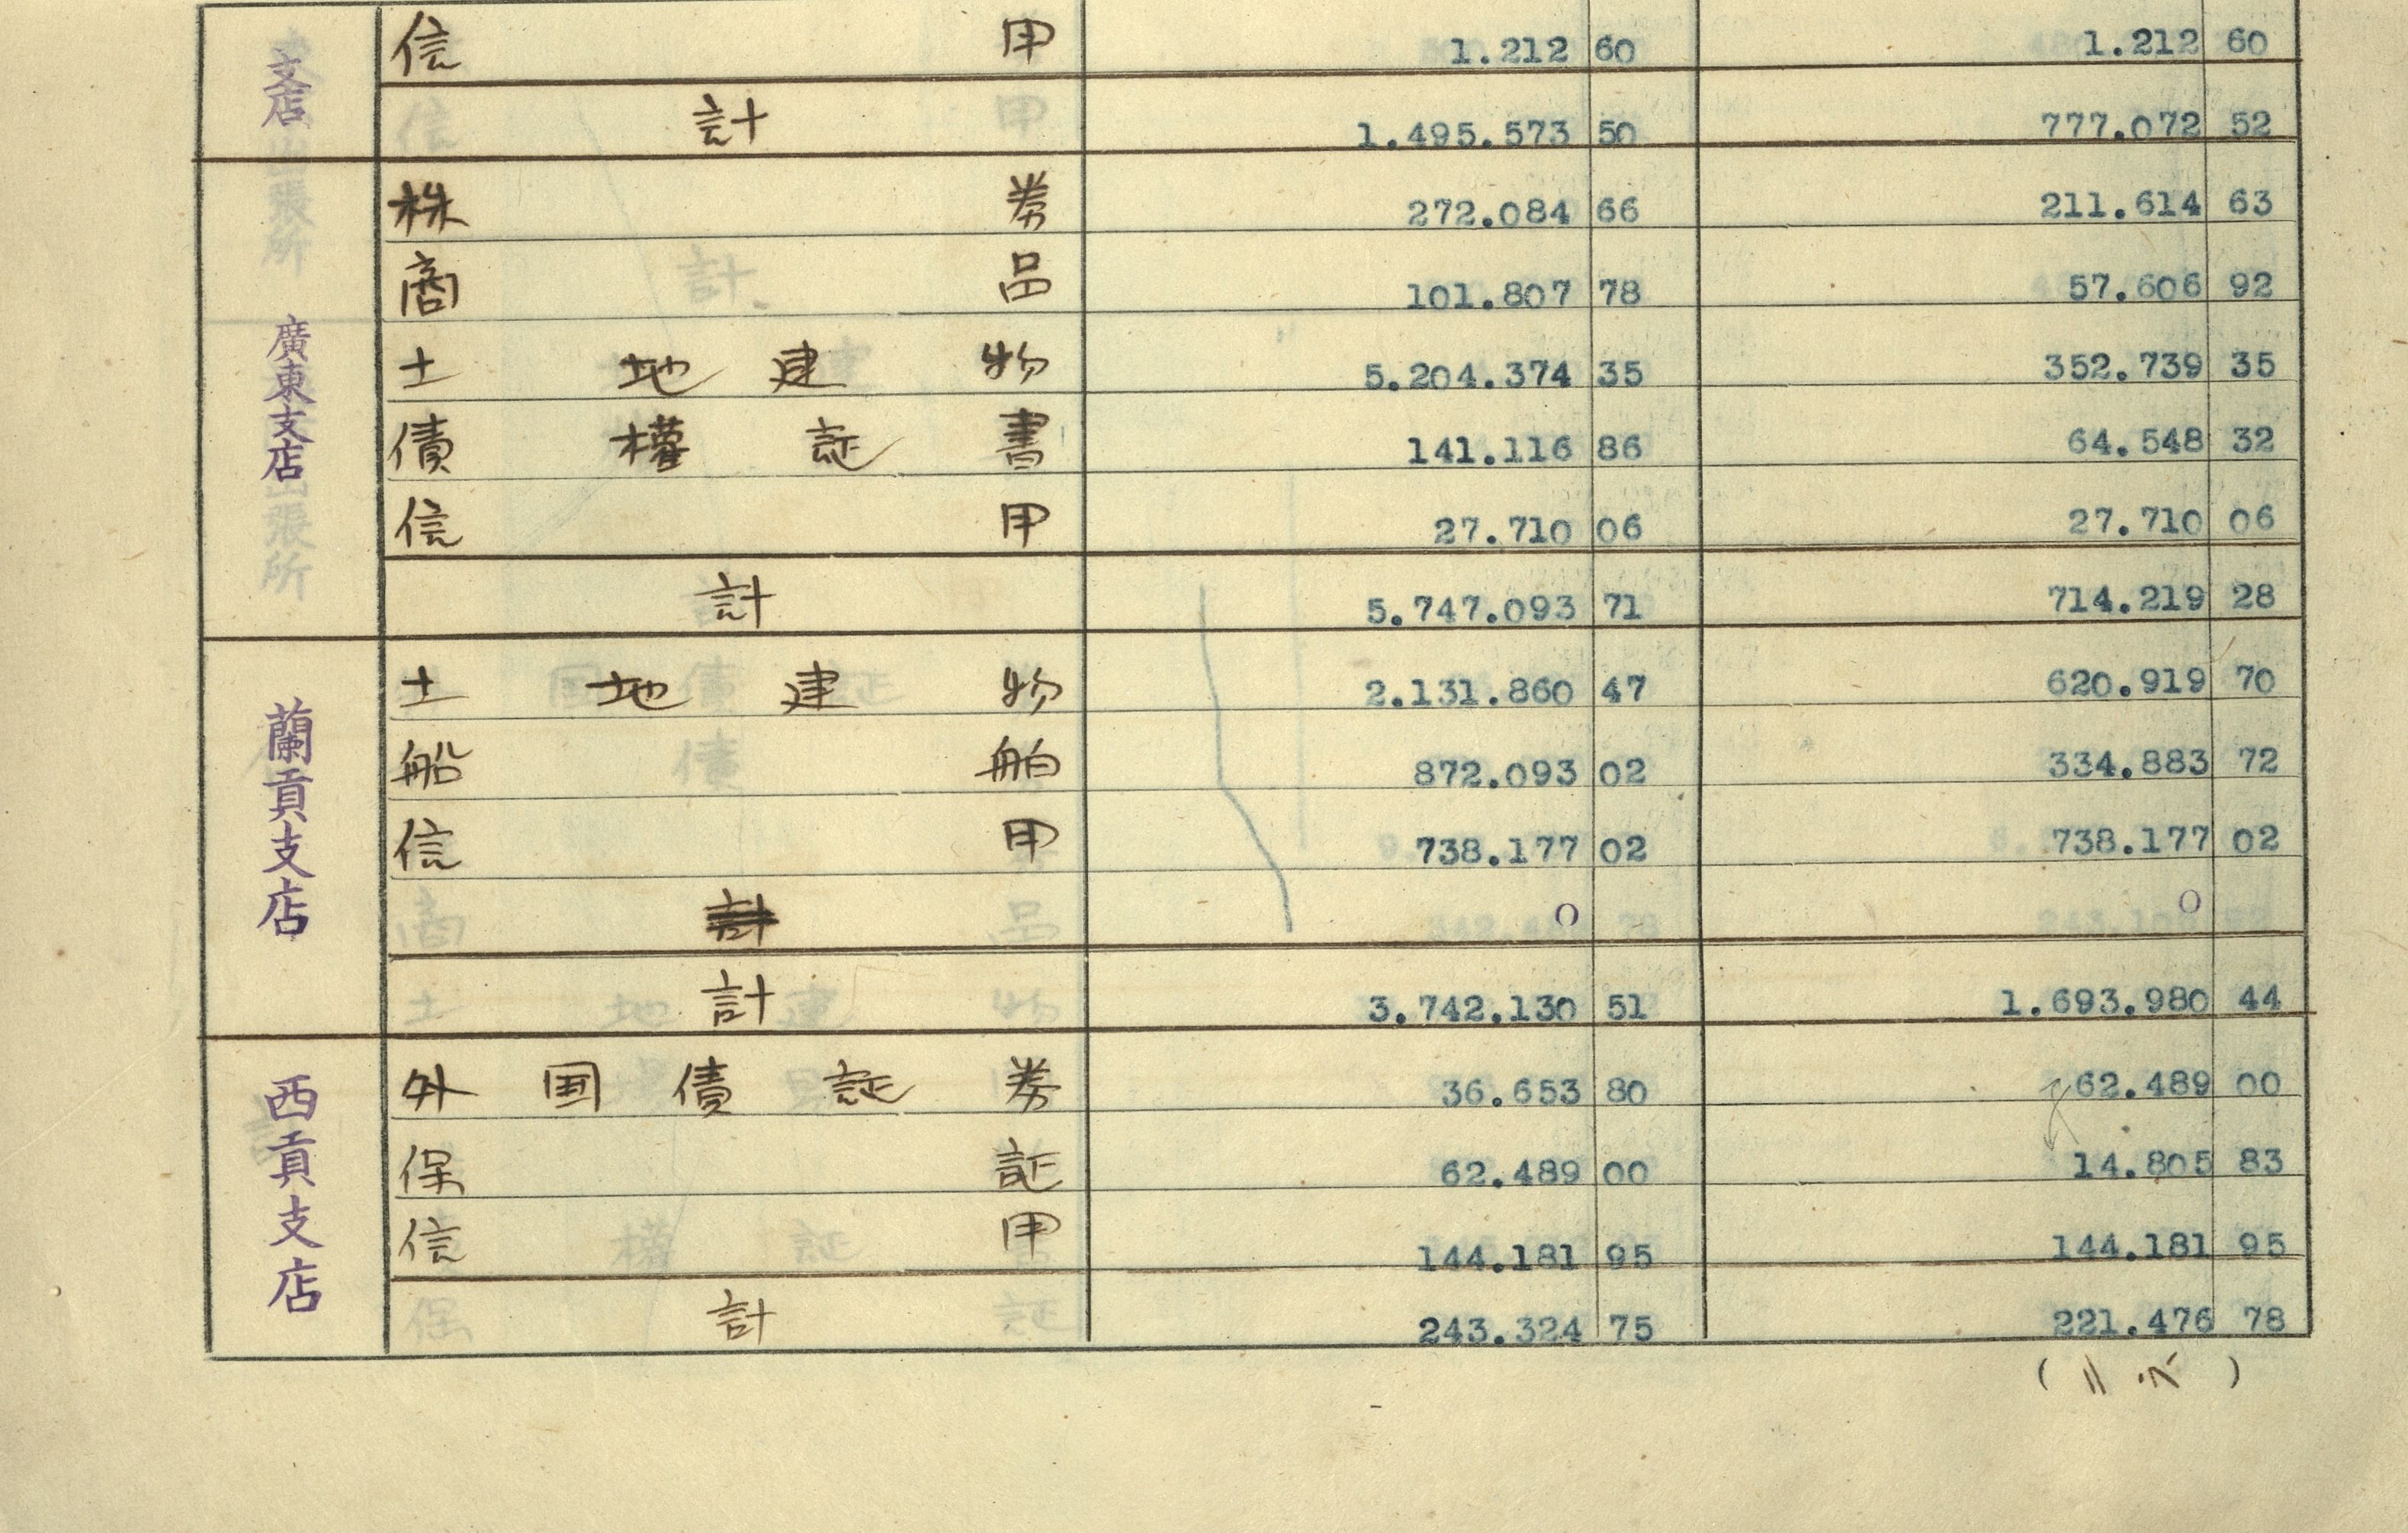 支店
信 用 1.212 60 1.212 60
計 1.495.573 50 777.072 52
廣東支店
株 券 272.084 66 211.614 63
商 品 101.807 78 57.606 92
土 地 建 物 5.204.374 35 352.739 35
債 權 証 書 141.116 86 64.548 32
信 用 27.710 06 27.710 06
計 5.747.093 71 714.219 28
蘭貢支店
土 地 建 物 2.131.860 47 620.919 70
船 舶 872.093 02 334.883 72
信 用 738.177 02 738.177 02
計 0 0
計 3.742.130 51 1.693.980 44
西貢支店
外 国 債 証 券 36.653 80 62.489 00
保 証 62.489 00 14.805 83
信 用 144.181 95 144.181 95
計 243.324 75 221.476 78